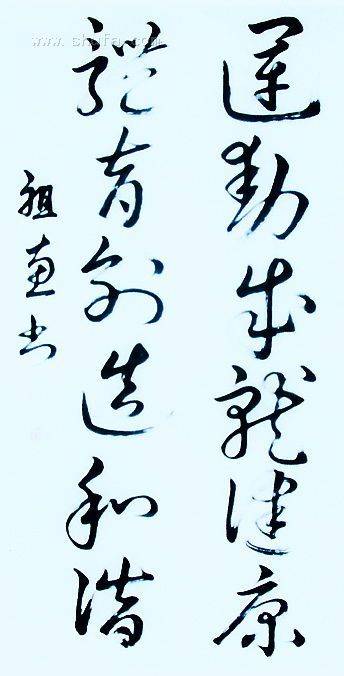 www.shufa.com
運動成就健康
體育創造和諧
祖惠书